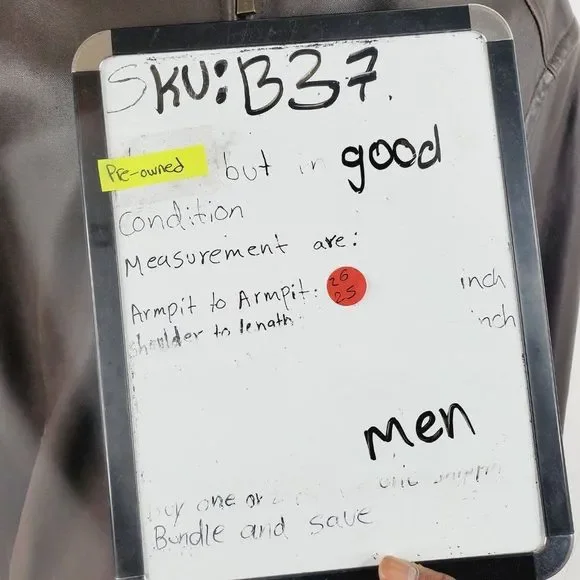 SKU: B37.
Pre-owned but in good
Condition
Measurement are:
Armpit to Armpit: 26 inch
25
shoulder to lenath inch
men
buy one or
Bundle and save